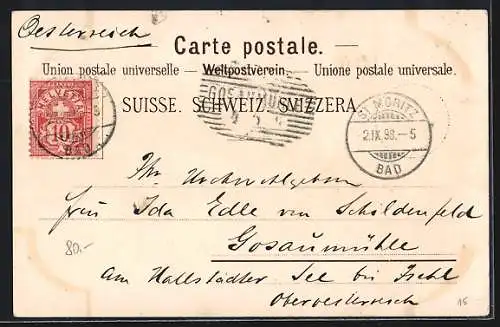 Oesterreich
Carte postale.
Union postale universelle. — Weltpostverein. — Unione postale universale.
SUISSE. SCHWEIZ. SVIZZERA.
HELVETIA
10
BAD
GOSAUMÜHL
ST. MORITZ
2.IX.98.-5
BAD
Ihr Hochwohlgeboren
Frau Ida Edle von Schildenfeld
Gosaumühle
am Hallstädter See bei Ischl
Oberoesterreich
80.-
15